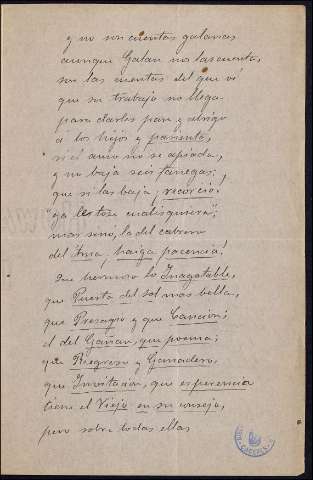 y no son cuentas galanas
aunque Galan no las cuenta,
son las cuentas del que vé
que su trabajo no llega
para darles pan y abrigo
á los hijos y pariente,
si el amo no se apiada,
y no baja seis fanegas;
que si las baja, ¡recorcio!
ya les tose cualisquiera;
mas sinó, la del cabrero
del Ama, ¡haiga pacencia!
Que hermoso lo Inagotable,
que Puesta del sol mas bella,
que Presagio y que Canción;
el del Gañan, que poema;
que Regreso y Ganadero,
que Invitación, que esperencia
tiene el Viejo en su consejo,
pero sobre todas ellas